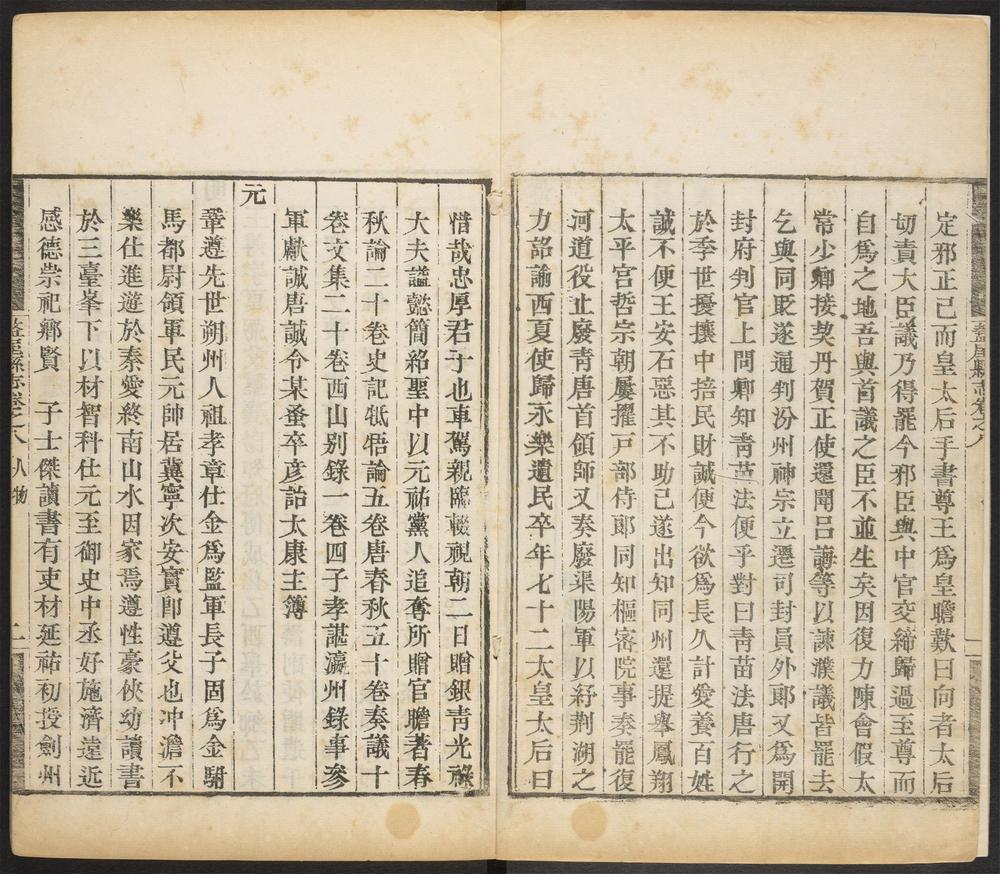 盩厔縣志卷之八
定邪正已而皇太后手書尊王為皇瞻歎曰向者太后
切責大臣議乃得罷今邪臣與中官交締歸過至尊而
自為之地吾與首議之臣不並生矣因復力陳會假太
常少卿接契丹賀正使還聞呂誨等以諫濮議皆罷去
乞與同貶遂通判汾州神宗立遷司封員外郎又為開
封府判官上問卿知青苗法便乎對曰青苗法唐行之
於季世擾攘中掊民財誠便今欲為長久計愛養百姓
誠不便王安石惡其不助己遂出知同州還提舉鳳翔
太平宮哲宗朝屢擢戸部侍郎同知樞密院事奏罷復
河道役止廢青唐首領師又奏廢渠陽軍以紓荆湖之
力詔諭西夏使歸永樂遺民卒年七十二太皇太后曰
惜哉忠厚君子也車駕親臨輟視朝二日贈銀青光祿
大夫謚懿簡紹聖中以元祐黨人追奪所贈官瞻著春
秋論二十卷史記牴牾論五卷唐春秋五十卷奏議十
卷文集二十卷西山別錄一卷四子孝諶瀛州錄事參
軍獻誠唐誠令某蚤卒彦詒太康主簿
元
鞏遵先世朔州人祖孝章仕金為監軍長子固為金駙
馬都尉領軍民元帥居冀寧次安實卽遵父也冲澹不
樂仕進遊於秦愛終南山水因家焉遵性豪俠幼讀書
於三臺峯下以材智科仕元至御史中丞好施濟遠近
感德崇祀鄉賢　子士傑讀書有吏材延祐初授劍州
盩厔縣志卷之八 人物 二